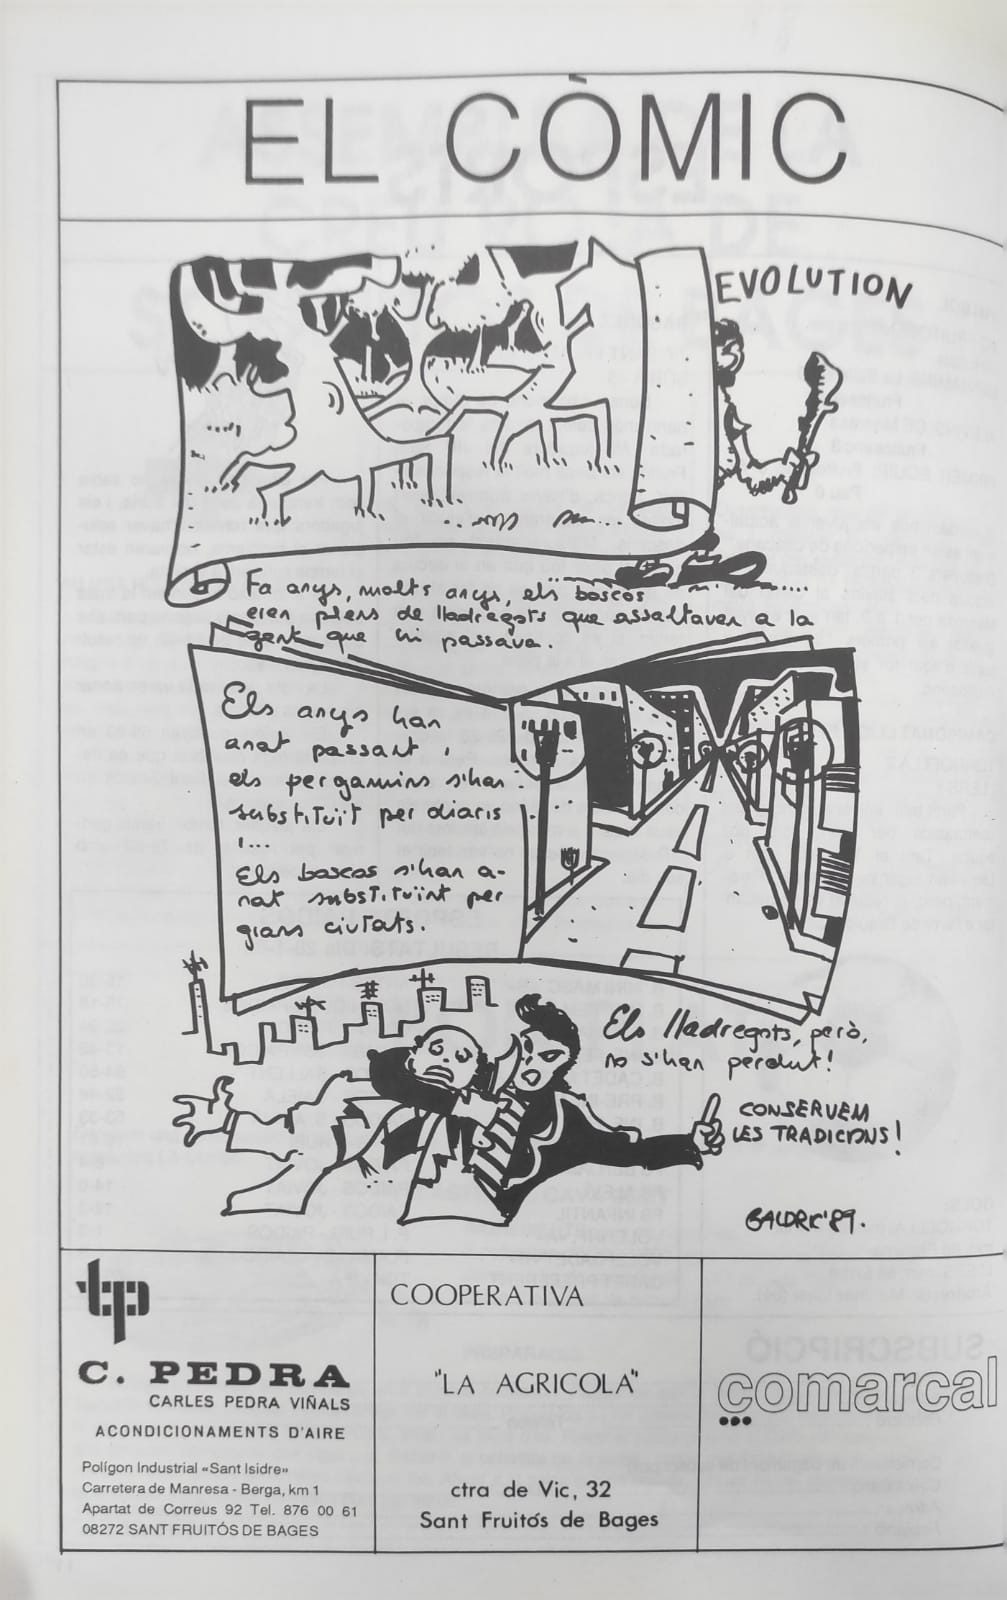 EL CÒMIC
EVOLUTION
Fa anys, molts anys, els boscos
eren plens de lladregots que assaltaven a la
gent que hi passava.
Els anys han
anat passant i
els pergamins s'han
substituït per diaris
i...
Els boscos s'han a-
nat substituïnt per
grans ciutats.
Els lladregots, però,
no s'han perdut!
CONSERVEM
LES TRADICIONS!
GALDRIC'89.
tp
C. PEDRA
CARLES PEDRA VIÑALS
ACONDICIONAMENTS D'AIRE
Polígon Industrial «Sant Isidre»
Carretera de Manresa - Berga, km 1
Apartat de Correus 92 Tel. 876 00 61
08272 SANT FRUITÓS DE BAGES
COOPERATIVA
"LA AGRICOLA"
ctra de Vic, 32
Sant Fruitós de Bages
comarcal